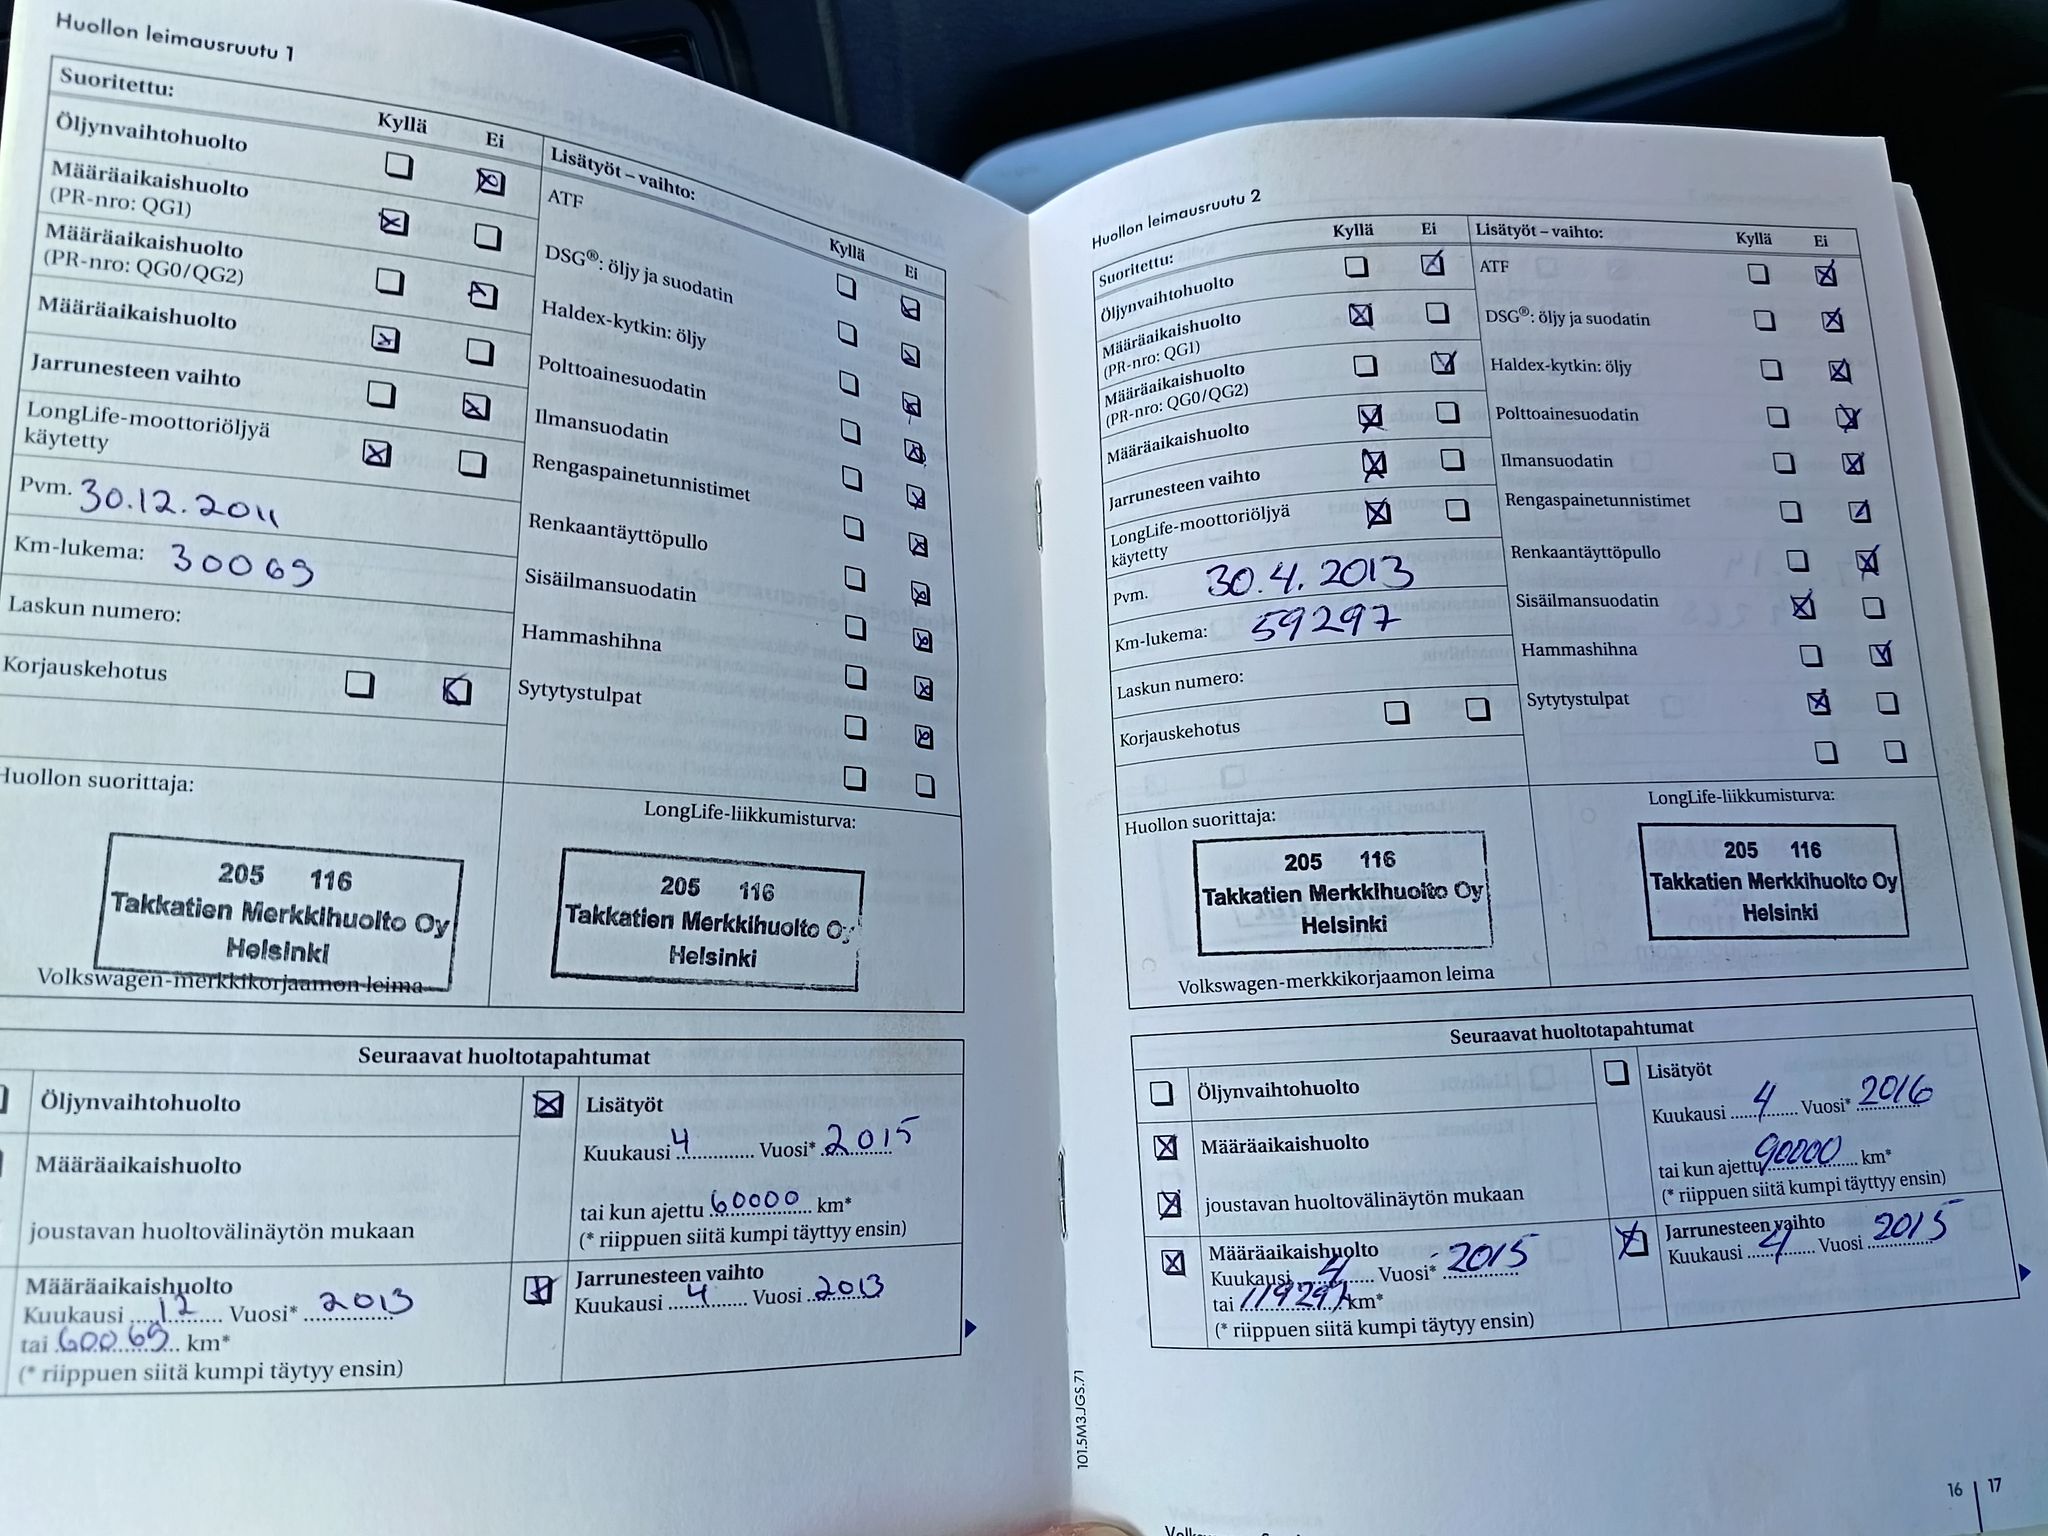 Huollon leimausruutu 1
Suoritettu:
Kyllä Ei
Öljynvaihtohuolto
Määräaikaishuolto
(PR-nro: QG1)
Määräaikaishuolto
(PR-nro: QG0/QG2)
Määräaikaishuolto
Jarrunesteen vaihto
LongLife-moottoriöljyä
käytetty
Pvm. 30.12.2011
Km-lukema: 30069
Laskun numero:
Korjauskehotus
Lisätyöt – vaihto:
Kyllä Ei
ATF
DSG®: öljy ja suodatin
Haldex-kytkin: öljy
Polttoainesuodatin
Ilmansuodatin
Rengaspainetunnistimet
Renkaantäyttöpullo
Sisäilmansuodatin
Hammashihna
Sytytystulpat
Huollon suorittaja:
205 116
Takkatien Merkkihuolto Oy
Helsinki
Volkswagen-merkkikorjaamon leima
LongLife-liikkumisturva:
205 116
Takkatien Merkkihuolto Oy
Helsinki
Seuraavat huoltotapahtumat
Öljynvaihtohuolto
Määräaikaishuolto
joustavan huoltovälinäytön mukaan
Määräaikaishuolto
Kuukausi 12 Vuosi* 2013
tai 60069 km*
(* riippuen siitä kumpi täytyy ensin)
Lisätyöt
Kuukausi 4 Vuosi* 2015
tai kun ajettu 60000 km*
(* riippuen siitä kumpi täyttyy ensin)
Jarrunesteen vaihto
Kuukausi 4 Vuosi 2013
Huollon leimausruutu 2
Suoritettu:
Kyllä Ei
Öljynvaihtohuolto
Määräaikaishuolto
(PR-nro: QG1)
Määräaikaishuolto
(PR-nro: QG0/QG2)
Määräaikaishuolto
Jarrunesteen vaihto
LongLife-moottoriöljyä
käytetty
Pvm. 30.4.2013
Km-lukema: 59297
Laskun numero:
Korjauskehotus
Lisätyöt – vaihto:
Kyllä Ei
ATF
DSG®: öljy ja suodatin
Haldex-kytkin: öljy
Polttoainesuodatin
Ilmansuodatin
Rengaspainetunnistimet
Renkaantäyttöpullo
Sisäilmansuodatin
Hammashihna
Sytytystulpat
Huollon suorittaja:
205 116
Takkatien Merkkihuolto Oy
Helsinki
Volkswagen-merkkikorjaamon leima
LongLife-liikkumisturva:
205 116
Takkatien Merkkihuolto Oy
Helsinki
Seuraavat huoltotapahtumat
Öljynvaihtohuolto
Määräaikaishuolto
joustavan huoltovälinäytön mukaan
Määräaikaishuolto
Kuukausi 4 Vuosi* 2015
tai 119297 km*
(* riippuen siitä kumpi täytyy ensin)
Lisätyöt
Kuukausi 4 Vuosi* 2016
tai kun ajettu 90000 km*
(* riippuen siitä kumpi täyttyy ensin)
Jarrunesteen vaihto
Kuukausi 4 Vuosi 2015
101.5M3.JGS.71
16 | 17